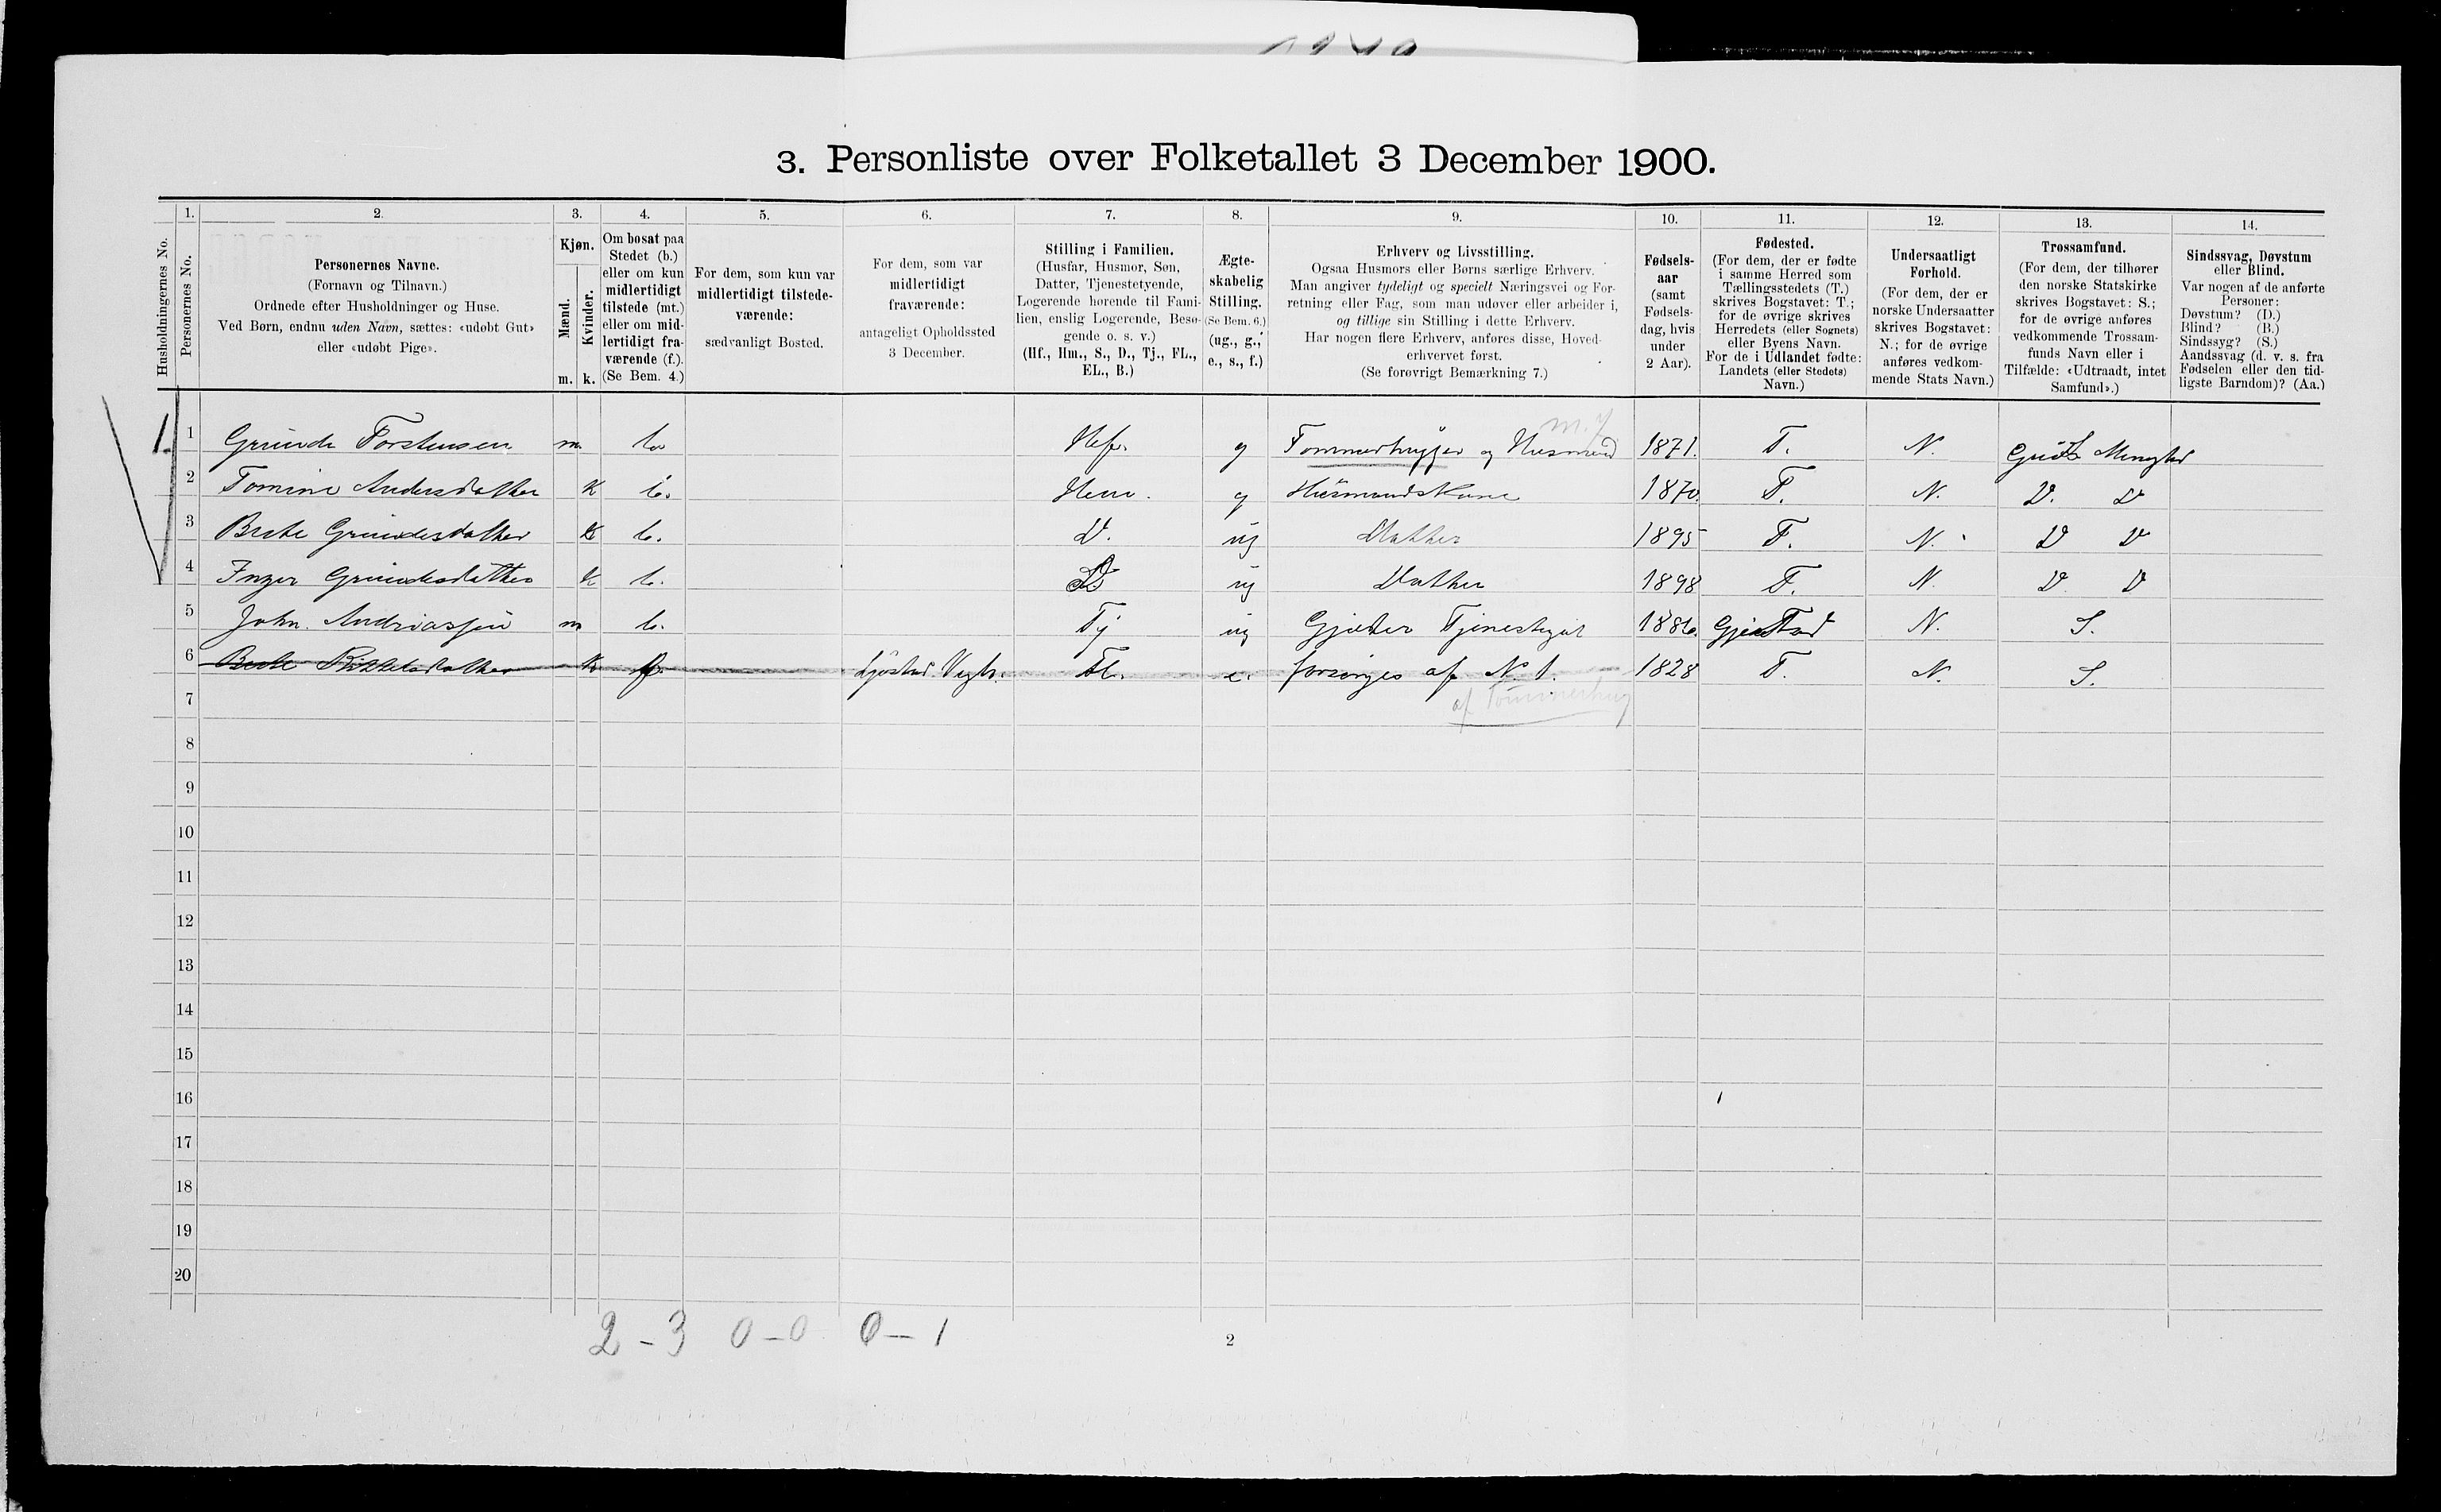 3. Personliste over Folketallet 3 December 1900.
Husholdningernes No.
1. Personernes No.
2. Personernes Navne.
(Fornavn og Tilnavn.)
Ordnede efter Husholdninger og Huse.
Ved Børn, endnu uden Navn, sættes: «udøbt Gut»
eller «udøbt Pige».
3. Kjøn.
Mænd. m.
Kvinder. k.
4. Om bosat paa
Stedet (b.)
eller om kun
midlertidigt
tilstede (mt.)
eller om mid-
lertidigt fra-
værende (f.).
(Se Bem. 4.)
5. For dem, som kun var
midlertidigt tilstede-
værende:
sædvanligt Bosted.
6. For dem, som var
midlertidigt
fraværende:
antageligt Opholdssted
3 December.
7. Stilling i Familien.
(Husfar, Husmor, Søn,
Datter, Tjenestetyende,
Logerende hørende til Fami-
lien, enslig Logerende, Besø-
gende o. s. v.)
(Hf., Hm., S., D., Tj., FL.,
EL., B.)
8. Ægte-
skabelig
Stilling.
(Se Bem. 6.)
(ug., g.,
e., s., f.)
9. Erhverv og Livsstilling.
Ogsaa Husmors eller Børns særlige Erhverv.
Man angiver tydeligt og specielt Næringsvei og For-
retning eller Fag, som man udøver eller arbeider i,
og tillige sin Stilling i dette Erhverv.
Har nogen flere Erhverv, anføres disse, Hoved-
erhvervet først.
(Se forøvrigt Bemærkning 7.)
10. Fødsels-
aar
(samt
Fødsels-
dag, hvis
under
2 Aar).
11. Fødested.
(For dem, der er fødte
i samme Herred som
Tællingsstedets (T.)
skrives Bogstavet: T.;
for de øvrige skrives
Herredets (eller Sognets)
eller Byens Navn.
For de i Udlandet fødte:
Landets (eller Stedets)
Navn.)
12. Undersaatligt
Forhold.
(For dem, der er
norske Undersaatter
skrives Bogstavet:
N.; for de øvrige
anføres vedkom-
mende Stats Navn.)
13. Trossamfund.
(For dem, der tilhører
den norske Statskirke
skrives Bogstavet: S.;
for de øvrige anføres
vedkommende Trossam-
funds Navn eller i
Tilfælde: «Udtraadt, intet
Samfund».)
14. Sindssvag, Døvstum
eller Blind.
Var nogen af de anførte
Personer:
Døvstum? (D.)
Blind? (B.)
Sindssyg? (S.)
Aandssvag (d. v. s. fra
Fødselen eller den tid-
ligste Barndom)? (Aa.)
m. J
1. 1 Grunde Torstensen m b. Hf. g Tømmerhugger og Husmand 1871. T. N. Guds Menighed
2 Tomine Andersdatter K b. Hm. g Husmandskone 1870. T. N. D. D
3 Berte Grundesdatter K b. D. ug Datter 1895 T. N. D D
4 Inger Grundesdatter K b. D ug Datter 1898 T. N. D D
5 John Andreassen m b. Tj ug Gjæter Tjenestegut 1886. Gjerstad N. S.
6 K f. Vegh. FL. e. forsørges af N. 1. 1828 T. N. S.
af Tømmerhug
7
8
9
10
11
12
13
14
15
16
17
18
19
20
2 - 3 0 - 0 0 - 1
2